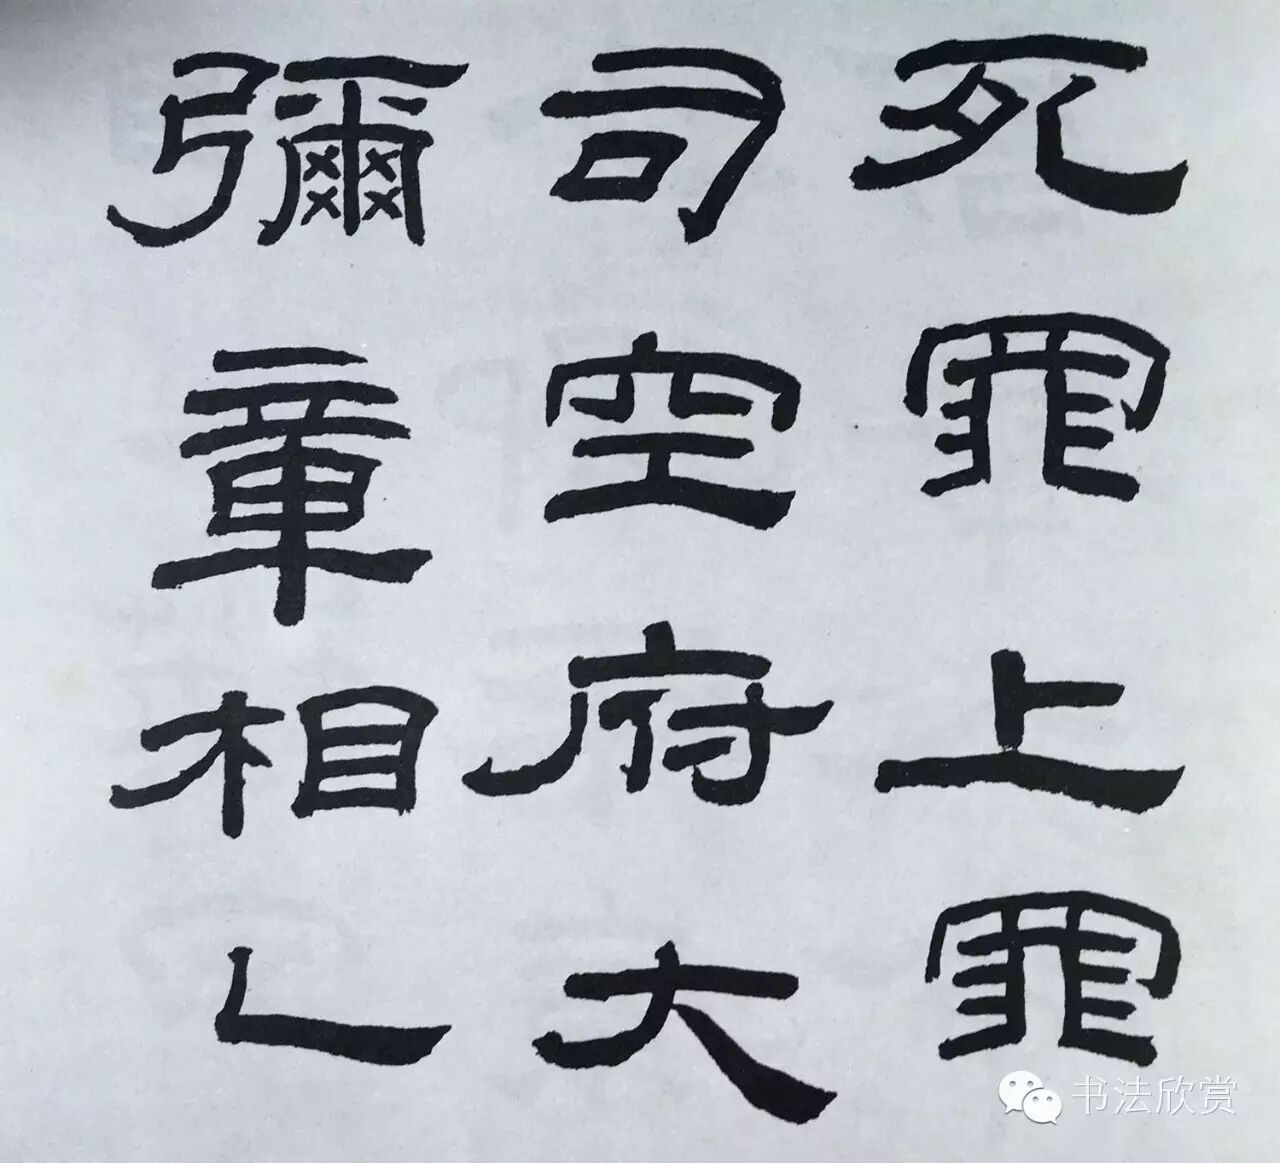 死罪上罪
司空府大
彌章相乚
书法欣赏